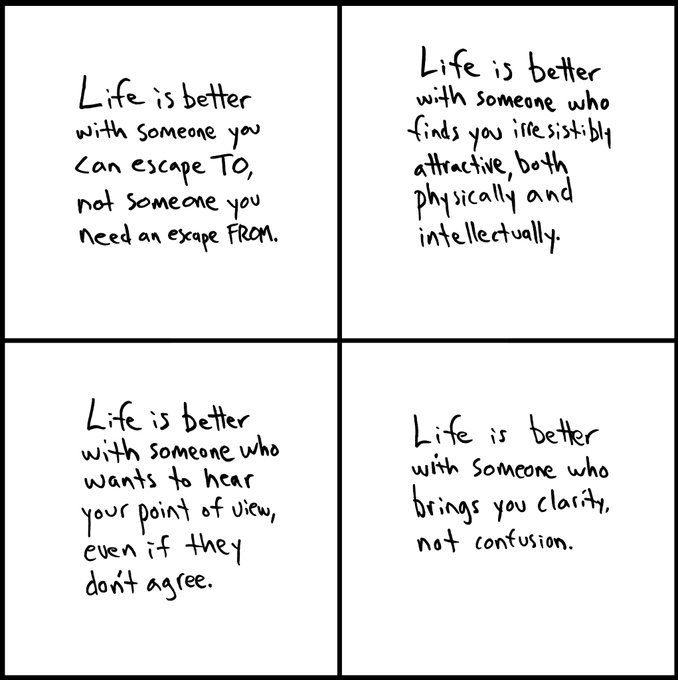 Life is better
with someone you
can escape TO,
not someone you
need an escape FROM.
Life is better
with someone who
finds you irresistibly
attractive, both
physically and
intellectually.
Life is better
with someone who
wants to hear
your point of view,
even if they
don't agree.
Life is better
with someone who
brings you clarity,
not confusion.